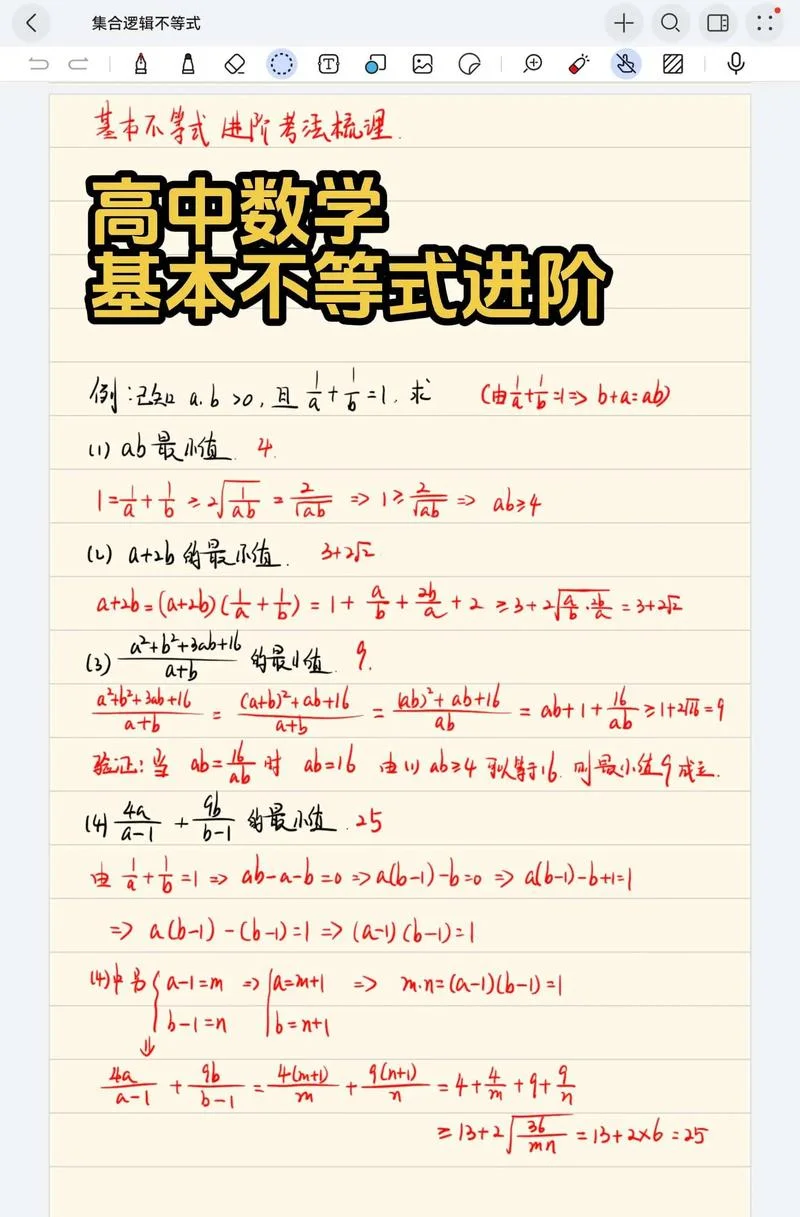 集合逻辑不等式
基本不等式进阶考法梳理.
高中数学
基本不等式进阶
例:已知 a.b >0, 且 1/a + 1/b =1. 求 (由1/a+1/b=1=> b+a=ab)
(1) ab最小值. 4.
1=1/a+1/b ≥2√(1/ab) = 2/√ab => 1≥2/√ab => ab≥4
(2) a+2b的最小值. 3+2√2
a+2b=(a+2b)(1/a+1/b) = 1+ a/b + 2b/a +2 ≥3+2√(a/b·2b/a) =3+2√2
(3) (a²+b²+3ab+16)/(a+b) 的最小值. 9.
(a²+b²+3ab+16)/(a+b) = ((a+b)²+ab+16)/(a+b) = ((ab)²+ab+16)/ab = ab+1+16/ab ≥1+2√16=9
验证:当 ab=16/ab 时 ab=16 由(1) ab≥4 可以等于16. 则最小值9成立.
(4) 4a/(a-1) + 9b/(b-1) 的最小值. 25
由 1/a+1/b=1 => ab-a-b=0 =>a(b-1)-b=0 => a(b-1)-b+1=1
=> a(b-1)-(b-1)=1 => (a-1)(b-1)=1
(4)中另 { a-1=m => { a=m+1 => m.n=(a-1)(b-1)=1
b-1=n b=n+1
⇓
4a/(a-1) + 9b/(b-1) = 4(m+1)/m + 9(n+1)/n = 4+4/m+9+9/n
≥13+2√(36/mn) =13+2×6=25